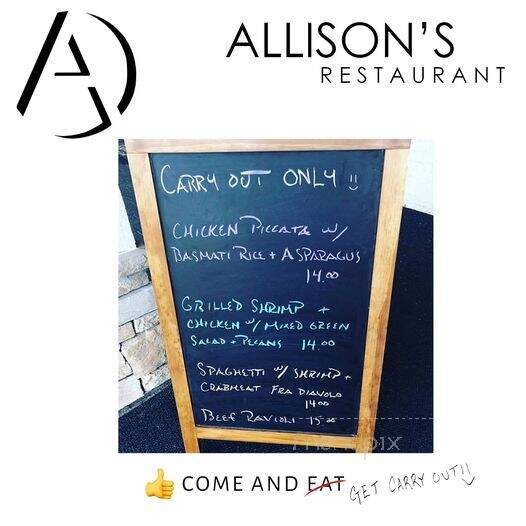 ALLISON'S
RESTAURANT
CARRY OUT ONLY !!
CHICKEN PICCATA W/
BASMATI RICE + ASPARAGUS
14.00
GRILLED SHRIMP +
CHICKEN W/ MIXED GREEN
SALAD + PECANS 14.00
SPAGHETTI W/ SHRIMP +
CRABMEAT FRA DIAVOLO
14.00
BEEF RAVIOLI 15.00
COME AND EAT GET CARRY OUT!!